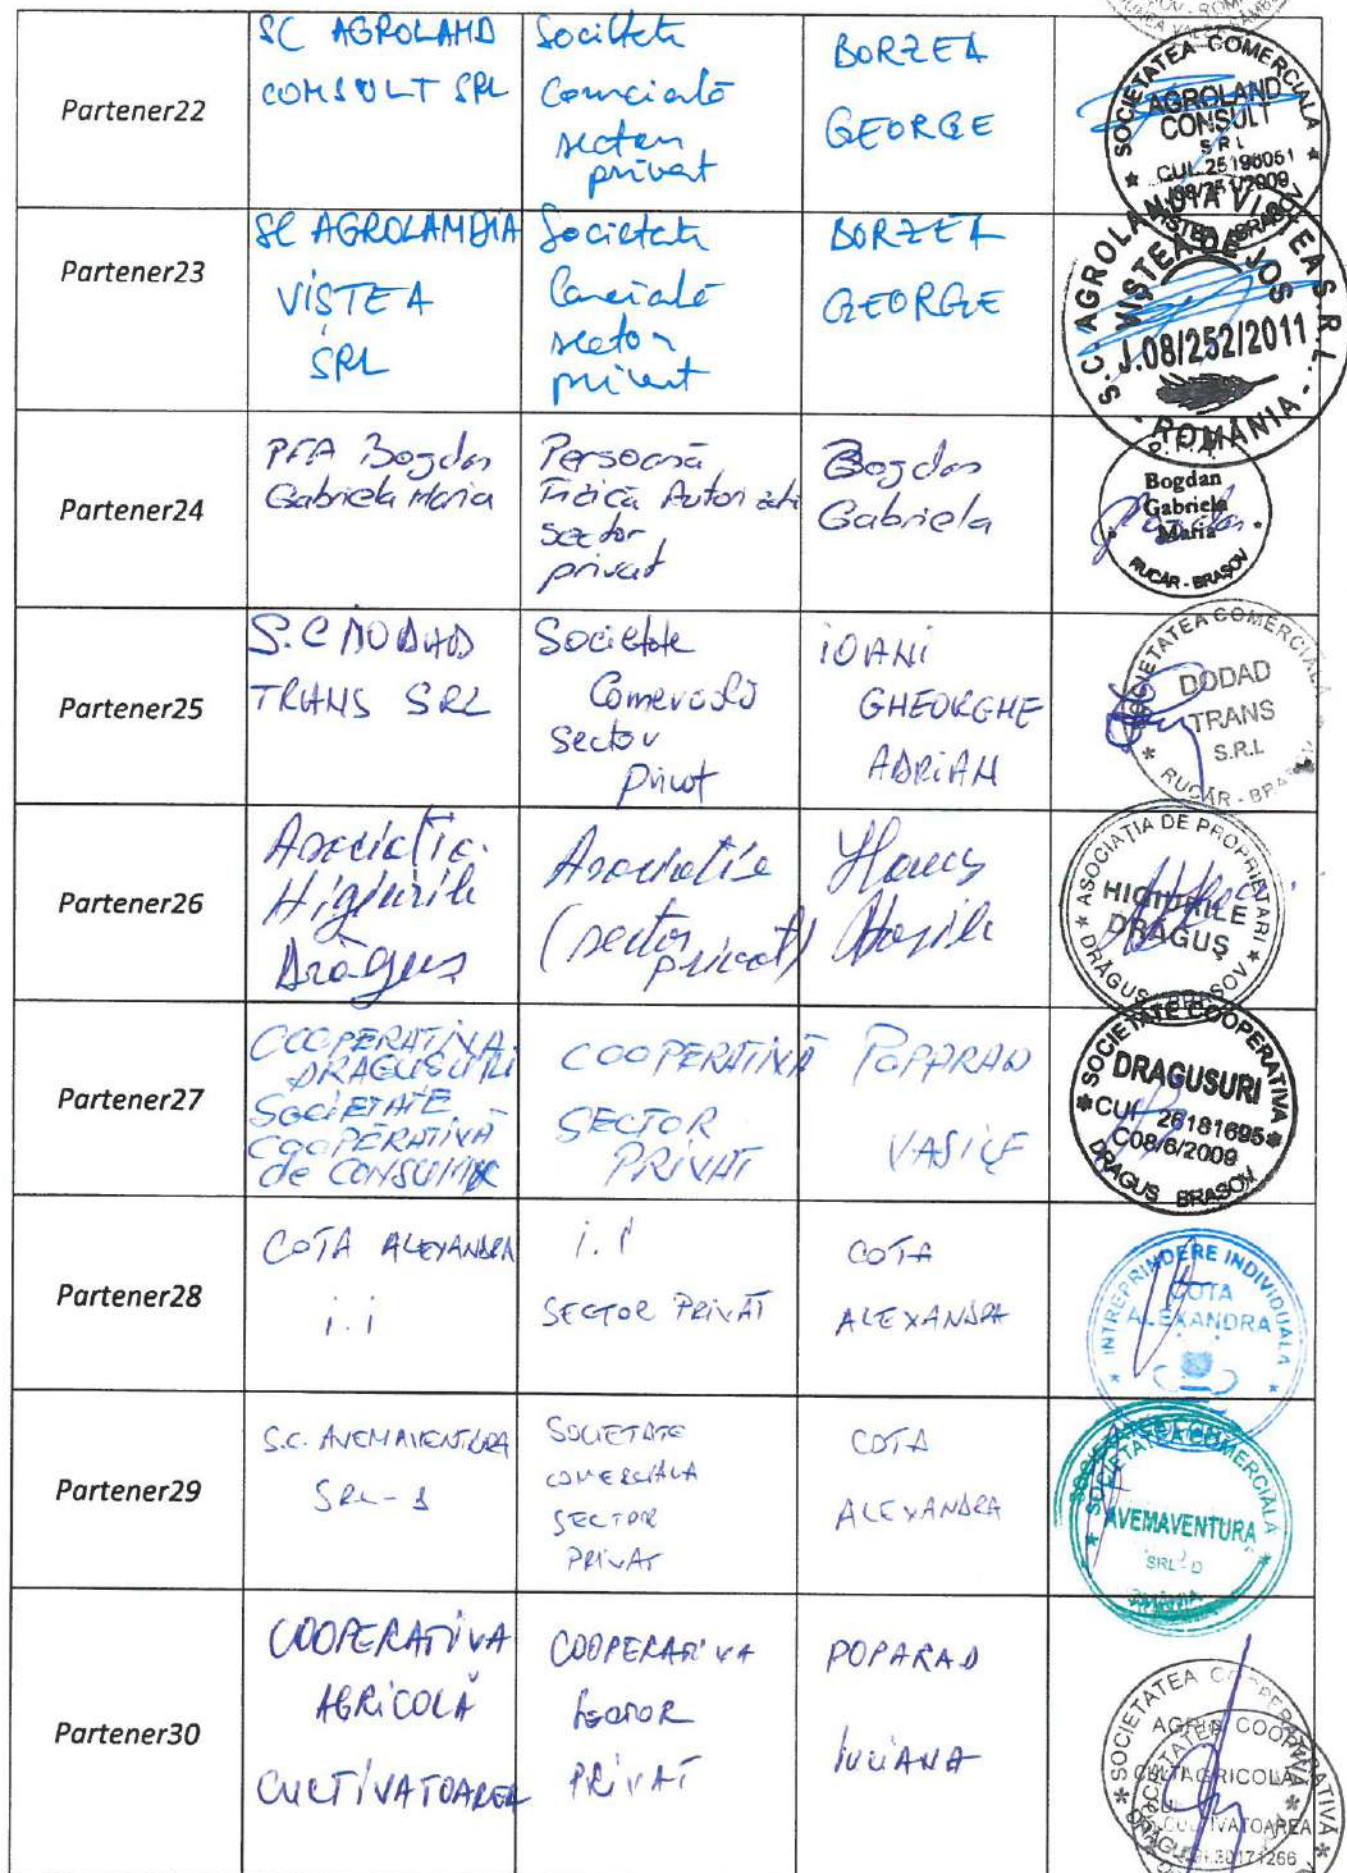 Partener22
SC AGROLAND
CONSULT SRL
Societate
Comercială
sector
privat
BORZEA
GEORGE
SOCIETATEA COMERCIALA
AGROLAND
CONSULT
S R L
CUI. 25196051
Partener23
SC AGROLANDIA
VIȘTEA
SRL
Societate
Comercială
sector
privat
BORZEA
GEORGE
S.C. AGROLANDIA VIȘTEA S.R.L.
VIȘTEA DE JOS
J.08/252/2011
- ROMÂNIA -
Partener24
PFA Bogdan
Gabriela Maria
Persoană
Fizică Autorizată
sector
privat
Bogdan
Gabriela
P.F.A.
Bogdan
Gabriela
Maria
RUCĂR - BRAȘOV
Partener25
S.C DODAD
TRANS SRL
Societate
Comercială
Sector
privat
IOANI
GHEORGHE
ADRIAN
SOCIETATEA COMERCIALA
DODAD
TRANS
S.R.L
RUCĂR - BRAȘOV
Partener26
Asociația
Higiurile
Drăguș
Asociație
(sector
privat)
Vasile
ASOCIAȚIA DE PROPRIETARI
HIGIURILE
DRĂGUȘ
DRĂGUȘ BRAȘOV
Partener27
COOPERATIVA
DRAGUSURI
SOCIETATE
COOPERATIVĂ
de CONSUM
COOPERATIVĂ
SECTOR
PRIVAT
POPARAD
VASILE
SOCIETATE COOPERATIVA
DRAGUSURI
CUI 26181695
C08/6/2009
DRAGUS BRASOV
Partener28
COTA ALEXANDRA
i.i
i.i
SECTOR PRIVAT
COTA
ALEXANDRA
INTREPRINDERE INDIVIDUALA
COTA
ALEXANDRA
Partener29
S.C. AVEMAVENTURA
SRL-D
SOCIETATE
COMERCIALA
SECTOR
PRIVAT
COTA
ALEXANDRA
SOCIETATEA COMERCIALA
AVEMAVENTURA
SRL-D
Partener30
COOPERATIVA
AGRICOLĂ
CULTIVATOAREA
COOPERATIVA
SECTOR
PRIVAT
POPARAD
LUCIANA
SOCIETATEA COOPERATIVA
AGRICOLA
CULTIVATOAREA
30171266